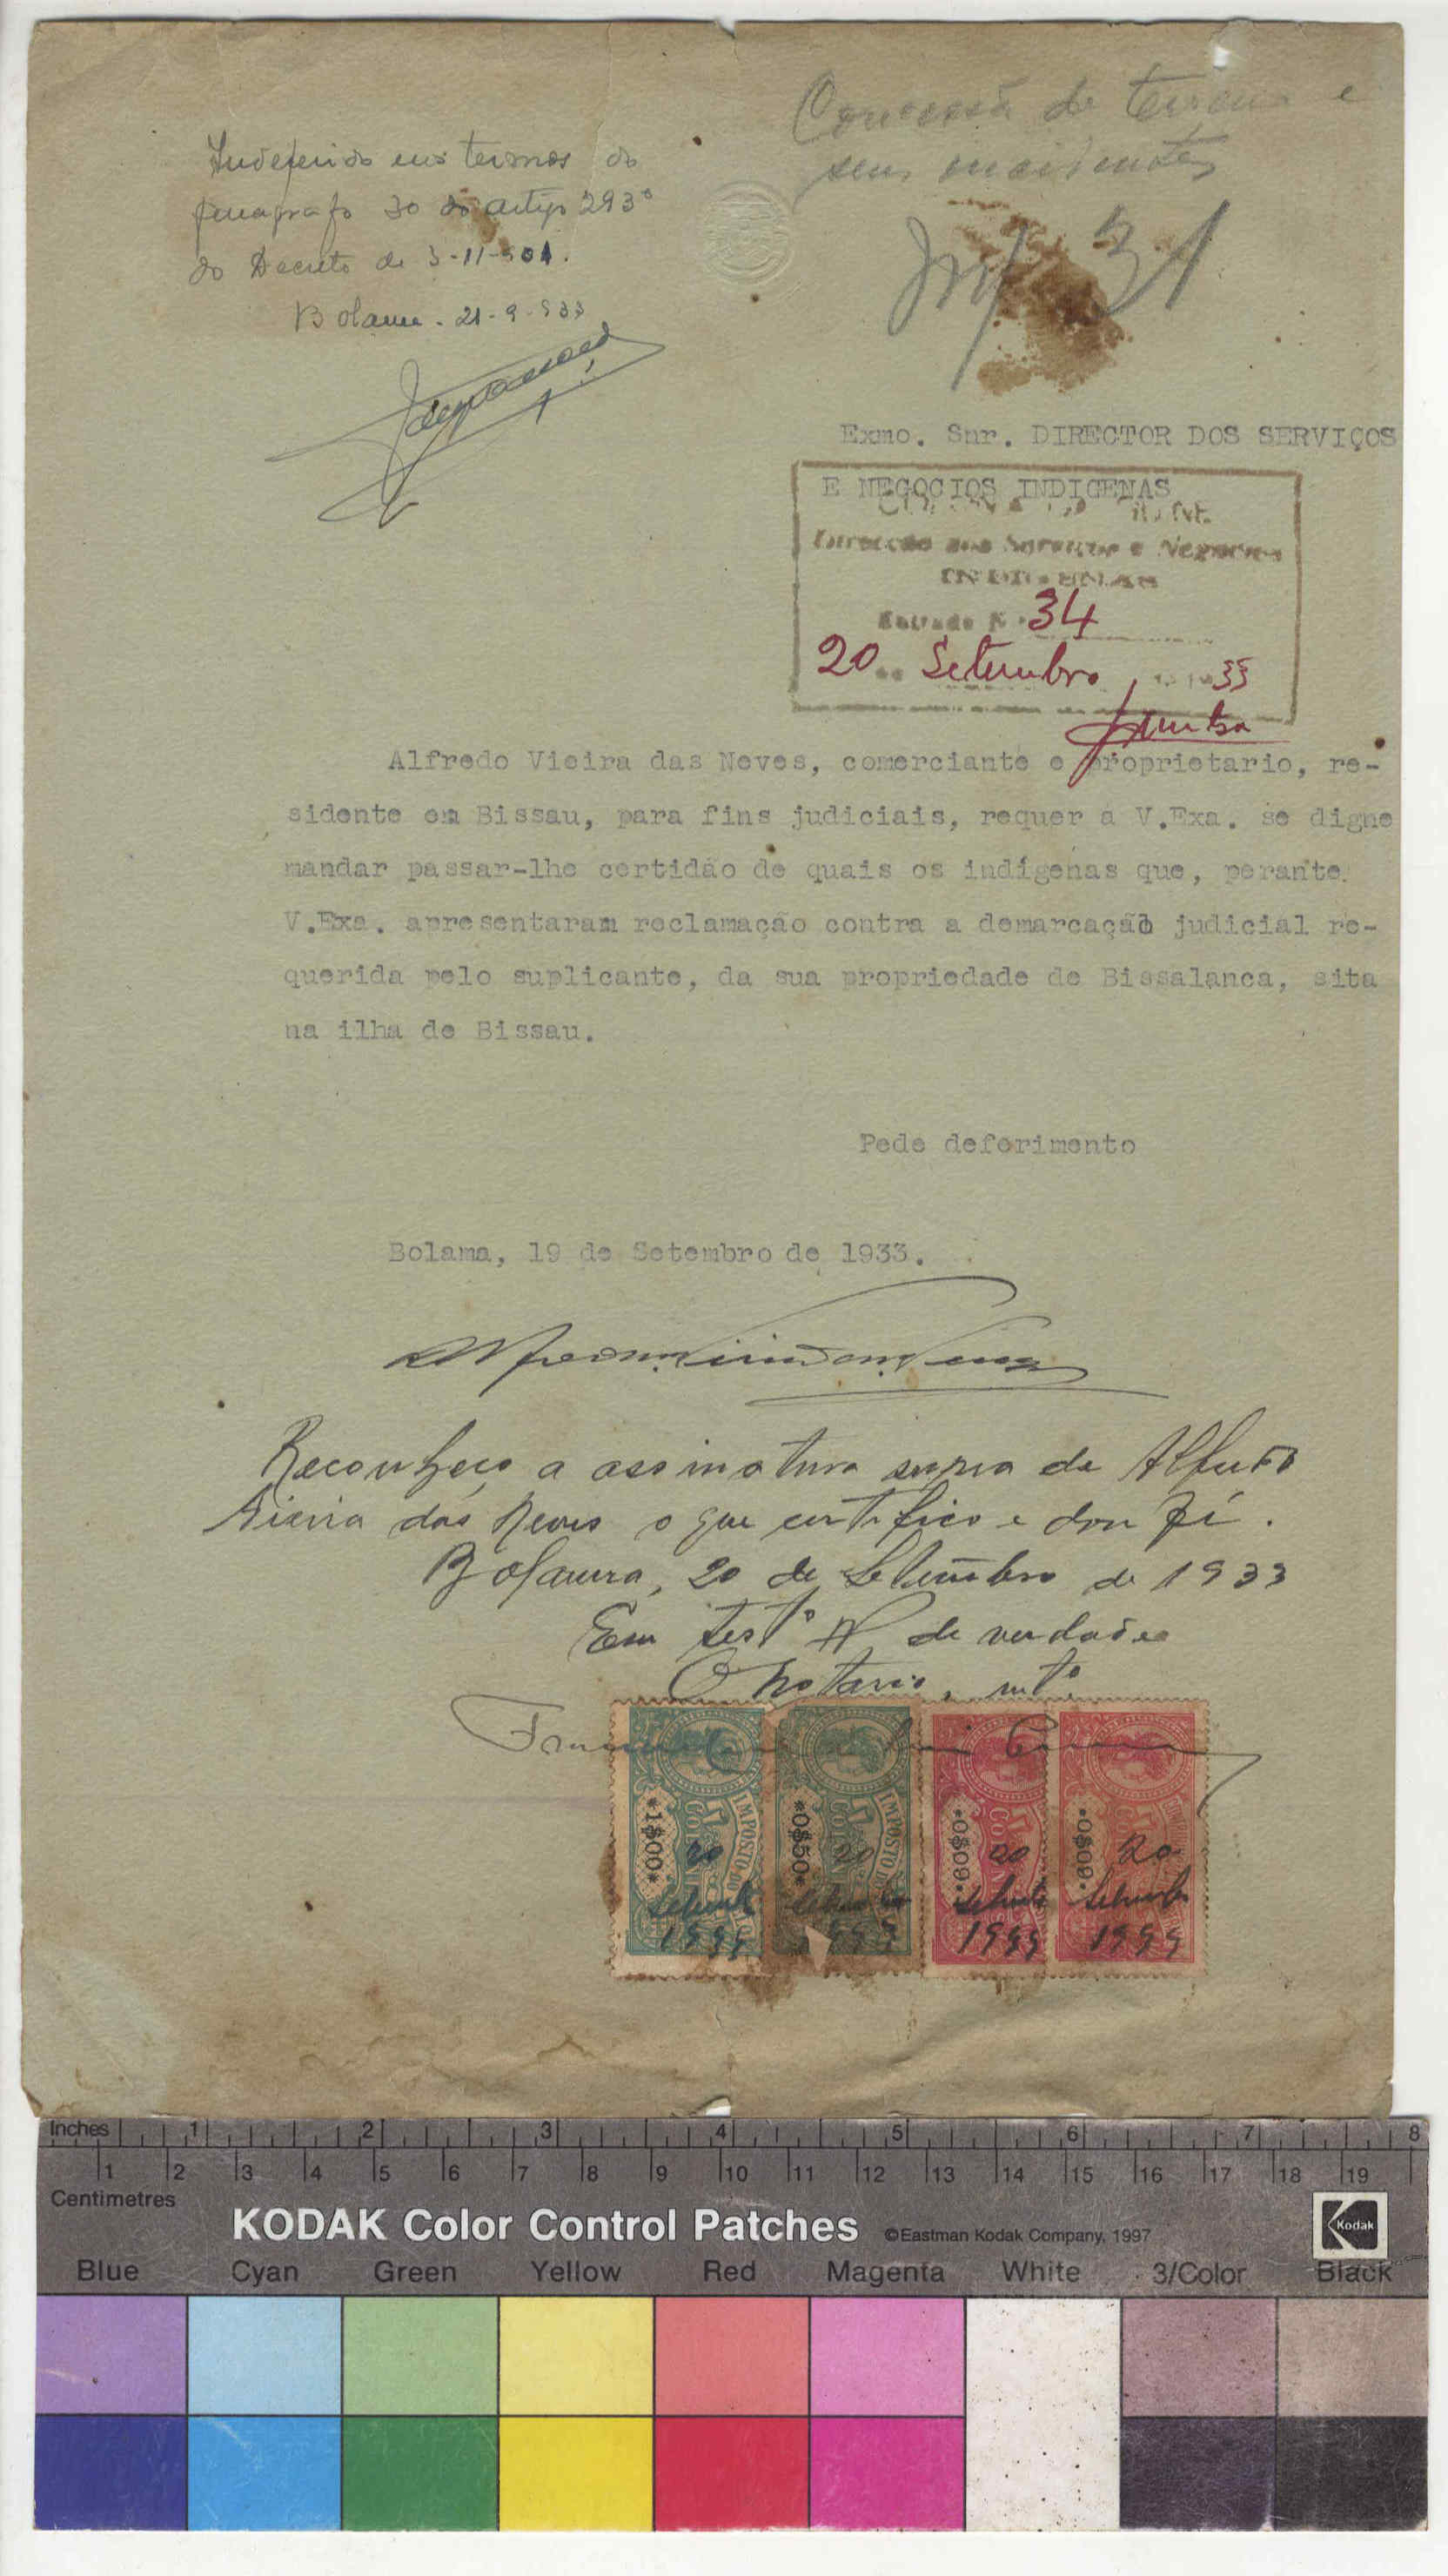 Concessã de terreno e
seus incidentes
Indeferido nos termos do
paragrafo 3o do artigo 293º
do Decreto de 3-11-901.
Bolama - 21-9-933
31
Exmo. Snr. DIRECTOR DOS SERVIÇOS
E NEGOCIOS INDIGENAS
Direcção dos Serviços e Negocios
INDIGENAS
Entrada Nº 34
20 de Setembro 33
Alfredo Vieira das Neves, comerciante e proprietario, re-
sidente em Bissau, para fins judiciais, requer a V.Exa. se digne
mandar passar-lhe certidão de quais os indígenas que, perante
V.Exa. apresentaram reclamação contra a demarcação judicial re-
querida pelo suplicante, da sua propriedade de Bissalanca, sita
na ilha de Bissau.
Pede deferimento
Bolama, 19 de Setembro de 1933.
Reconheço a assinatura supra de Alfredo
Vieira das Neves o que certifico e dou fé.
Bolama, 20 de Setembro de 1933
Em testº de verdade
O notario, intº
*1$00* *0$50* *0$09* *0$09*
IMPOSTO DO IMPOSTO D
20 20 20 20
Setembro Setembro Setembro Setembro
1933 1933 1933 1933
Inches 1 2 3 4 5 6 7 8
1 2 3 4 5 6 7 8 9 10 11 12 13 14 15 16 17 18 19
Centimetres
KODAK Color Control Patches ©Eastman Kodak Company, 1997 Kodak
Blue Cyan Green Yellow Red Magenta White 3/Color Black